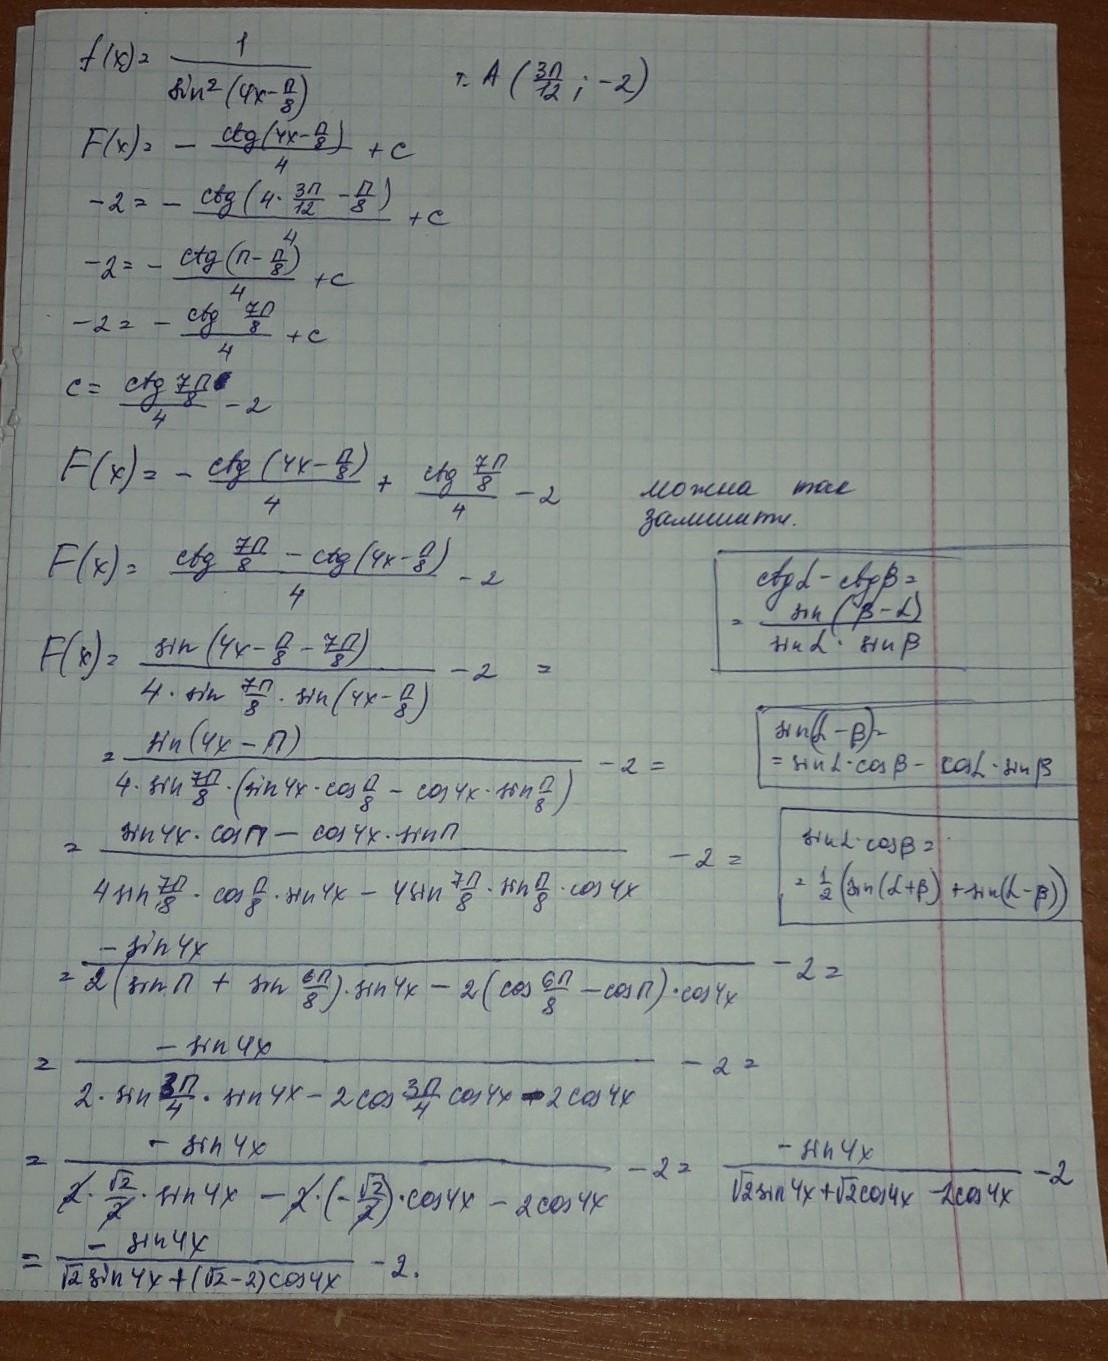 f(x) = 1 / sin²(4x - π/8)    т. A (3π/12 ; -2)
F(x) = - ctg(4x - π/8) / 4 + c
-2 = - ctg(4 · 3π/12 - π/8) / 4 + c
-2 = - ctg(π - π/8) / 4 + c
-2 = - ctg 7π/8 / 4 + c
c = ctg 7π/8 / 4 - 2
F(x) = - ctg(4x - π/8) / 4 + ctg 7π/8 / 4 - 2
можна так
залишити.
F(x) = (ctg 7π/8 - ctg(4x - π/8)) / 4 - 2
ctg α - ctg β =
= sin(β - α) / (sin α · sin β)
F(x) = sin(4x - π/8 - 7π/8) / (4 · sin 7π/8 · sin(4x - π/8)) - 2 =
= sin(4x - π) / (4 · sin 7π/8 · (sin 4x · cos π/8 - cos 4x · sin π/8)) - 2 =
sin(α - β) =
= sin α · cos β - cos α · sin β
= (sin 4x · cos π - cos 4x · sin π) / (4 sin 7π/8 · cos π/8 · sin 4x - 4 sin 7π/8 · sin π/8 · cos 4x) - 2 =
sin α · cos β =
= 1/2 (sin(α + β) + sin(α - β))
= - sin 4x / (2(sin π + sin 6π/8) · sin 4x - 2(cos 6π/8 - cos π) · cos 4x) - 2 =
= - sin 4x / (2 · sin 3π/4 · sin 4x - 2 cos 3π/4 cos 4x - 2 cos 4x) - 2 =
= - sin 4x / (2 · √2/2 · sin 4x - 2 · (-√2/2) · cos 4x - 2 cos 4x) - 2 = - sin 4x / (√2 sin 4x + √2 cos 4x - 2 cos 4x) - 2
= - sin 4x / (√2 sin 4x + (√2 - 2) cos 4x) - 2.